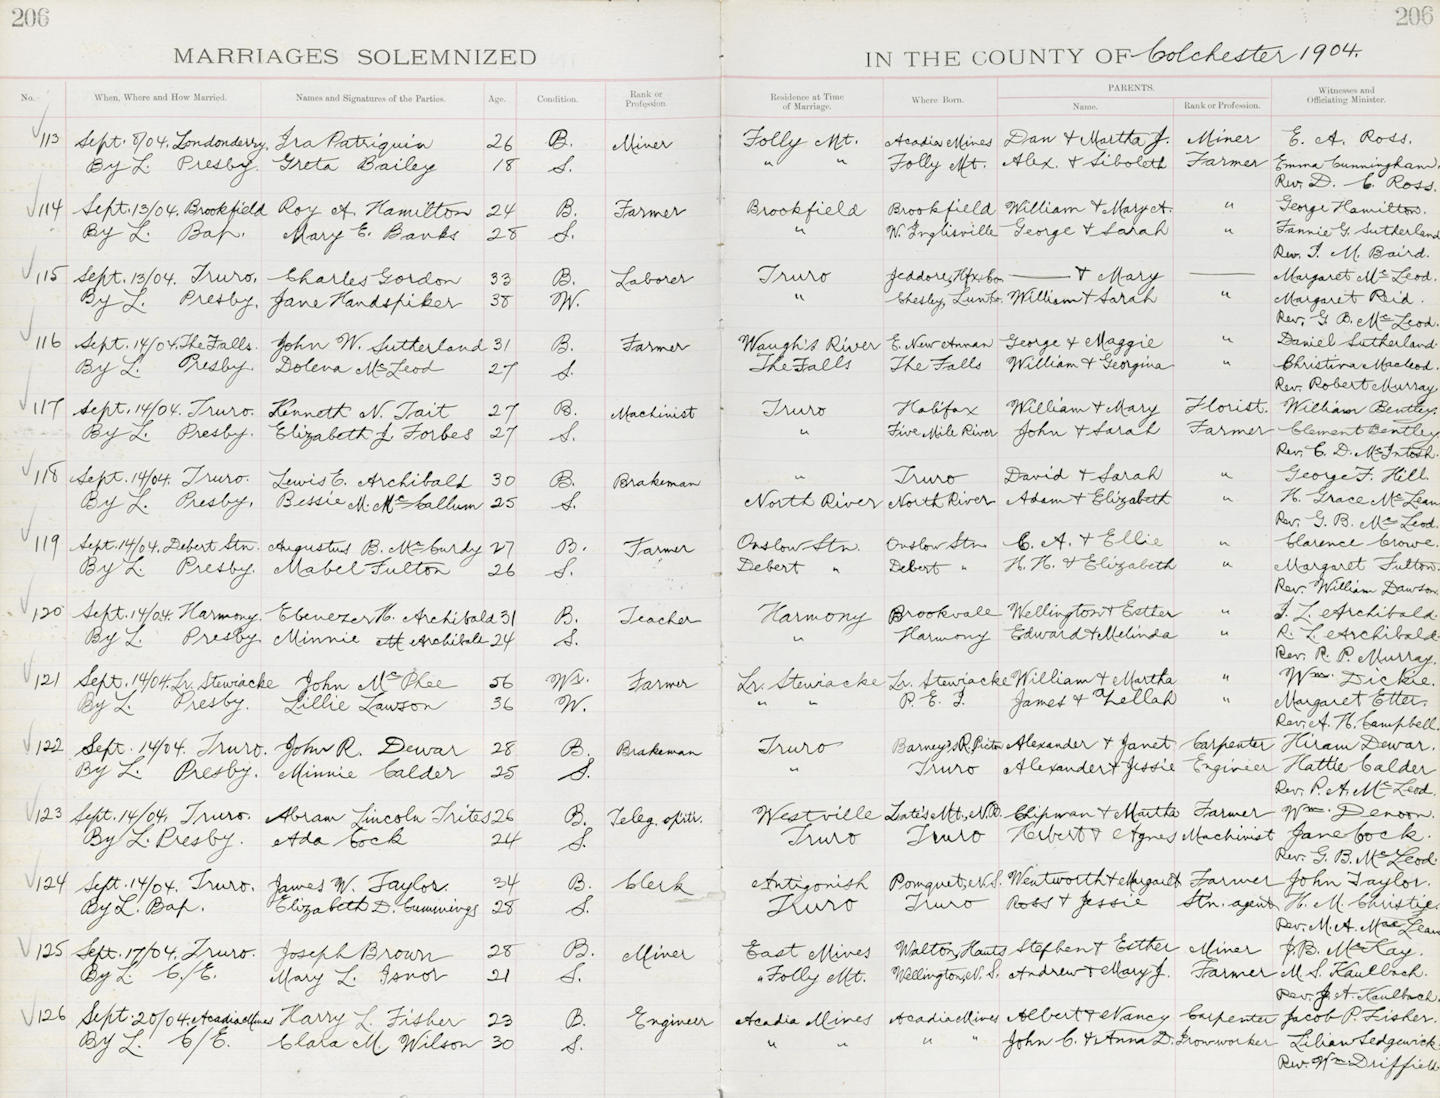 206
206
MARRIAGES SOLEMNIZED IN THE COUNTY OF Colchester 1904.
No. When, Where and How Married. Names and Signatures of the Parties. Age. Condition. Rank or Profession. Residence at Time of Marriage. Where Born. PARENTS. Name. Rank or Profession. Witnesses and Officiating Minister.
113 Sept. 8/04. Londonderry, Ira Patriquin 26 B. Miner Folly Mt. Acadia Mines Dan & Martha J. Miner E. A. Ross.
By L. Presby. Greta Bailey 18 S. " " Folly Mt. Alex. & Siboleth Farmer Emma Cunningham.
Rev. D. C. Ross.
114 Sept. 13/04. Brookfield Roy A. Hamilton 24 B. Farmer Brookfield Brookfield William & Mary A. " George Hamilton.
By L. Bap. Mary E. Banks 28 S. " W. Inglisville George & Sarah " Fannie G. Sutherland
Rev. I. M. Baird.
115 Sept. 13/04. Truro. Charles Gordon 33 B. Laborer Truro Jeddore, Hfx. Co. —— & Mary —— Margaret McLeod.
By L. Presby. Jane Handspiker 38 W. " Chesley, Lunbg. William & Sarah " Margaret Reid.
Rev. G. B. McLeod.
116 Sept. 14/04. The Falls. John W. Sutherland 31 B. Farmer Waugh's River E. New Annan George & Maggie " Daniel Sutherland.
By L. Presby. Dolena McLeod 27 S. The Falls The Falls William & Georgina " Christina Macleod.
Rev. Robert Murray
117 Sept. 14/04. Truro. Kenneth N. Tait 27 B. Machinist Truro Halifax William & Mary Florist. William Bentley.
By L. Presby. Elizabeth J. Forbes 27 S. " Five Mile River John & Sarah Farmer Clement Bentley
Rev. C. D. McIntosh.
118 Sept. 14/04. Truro. Lewis E. Archibald 30 B. Brakeman " Truro David & Sarah " George F. Hill.
By L. Presby. Bessie M. McCallum 25 S. North River North River Adam & Elizabeth " H. Grace McLean
Rev. G. B. McLeod.
119 Sept. 14/04. Debert Stn. Augustus B. McCurdy 27 B. Farmer Onslow Stn. Onslow Stn. C. A. & Ellie " Clarence Crowe.
By L. Presby. Mabel Fulton 26 S. Debert " Debert " H. H. & Elizabeth " Margaret Fulton.
Rev. William Dawson
120 Sept. 14/04. Harmony. Ebenezer H. Archibald 31 B. Teacher Harmony Brookvale Wellington & Esther " I. L. Archibald.
By L. Presby. Minnie M Archibald 24 S. " Harmony Edward & Melinda " R. L. Archibald.
Rev. R. P. Murray.
121 Sept. 14/04. Lr. Stewiacke John McPhee 56 Wr. Farmer Lr. Stewiacke Lr. Stewiacke William & Martha " Wm. Dickie.
By L. Presby. Lillie Lawson 36 W. " " P. E. I. James & Zellah " Margaret Etter.
Rev. A. H. Campbell.
122 Sept. 14/04. Truro. John R. Dewar 28 B. Brakeman Truro Barney's R. Pictou Alexander & Janet Carpenter Hiram Dewar.
By L. Presby. Minnie Calder 25 S. " Truro Alexander & Jessie Engineer Hattie Calder
Rev. P. A. McLeod.
123 Sept. 14/04. Truro. Abram Lincoln Trites 26 B. Teleg. optr. Westville Mt., N.B. Chipman & Martha Farmer Wm. Denoon.
By L. Presby. Ada Cock 24 S. Truro Truro Herbert & Agnes Machinist Jane Cock.
Rev. G. B. McLeod.
124 Sept. 14/04. Truro. James W. Taylor. 34 B. Clerk Antigonish Pomquet, N.S. Wentworth & Margaret Farmer John Taylor.
By L. Bap. Elizabeth D. Cummings 28 S. Truro Truro Ross & Jessie Stn. agent H. M. Christie.
Rev. M. A. MacLean
125 Sept. 17/04. Truro. Joseph Brown 28 B. Miner East Mines Walton, Hants Stephen & Esther Miner J. B. McKay.
By L. C/E. Mary L. Isnor 21 S. " Folly Mt. Wellington, N.S. Andrew & Mary J. Farmer M. S. Kaulbach.
Rev. J. A. Kaulbach.
126 Sept. 20/04. Acadia Mines Harry L. Fisher 23 B. Engineer Acadia Mines Acadia Mines Albert & Nancy Carpenter Jacob P. Fisher.
By L. C/E. Clara M. Wilson 30 S. " " " " John C. & Anna D. Ironworker Lilian Sedgewick.
Rev. Wm. Driffield